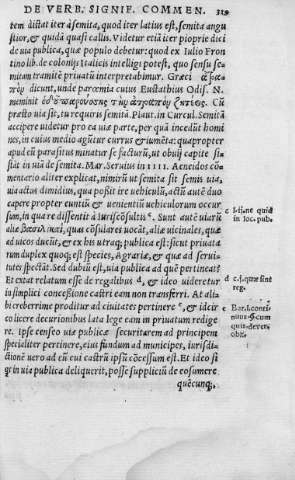 DE VERB. SIGNIF. COMMEN. 319
tem distat iter à semita, quod iter latius est, semita angu
stior, & quidā quasi callis. Videtur etiā iter proprie dici
de uia publica, quæ populo debetur: quod ex Iulio Fron
tino lib. de colonijs Italicis intelligi potest, quo sensu se-
mitam tramitē priuatū interpretabimur. Græci
dicunt, unde parœmia cuius Eustathius Odis. N.
meminit Cū
præsto uia sit, tu requiris semitā. Plaut. in Curcul. Semitā
accipere uidetur pro ea uia parte, per quā incedūt homi
nes, in cuius medio agūtur currus & iumēta: quapropter
apud eū parasitus minatur se facturū, ut obuij capite sist
āt in uia de semita. Mar. Seruius in IIII. Aeneidos cō
mentario aliter explicat, nimirū ut semita sit semis uia,
uia actus dimidius, quæ possit ire uehiculū, actū autē duo
capere propter euntiū & uenientiū uehiculorum occur
sum, in qua re dissentit à iurisconsultis c. Sunt autē uiarū
aliæ quas consulares uocat, aliæ uicinales, quæ
ad uicos ducūt, & ex his utraq; publica est: sicut priuata
rum duplex quoq; est species, Agrariæ, & quæ ad serui-
tutes spectāt. Sed dubiū est, uia publica ad quē pertineat:
Et extat relatum esse de regalibus d, & ideo uideretur
in simplici concessione castri eam non transferri. At ali
bi creberrime proditur ad ciuitates pertinere e, & ideo
colicere decurionibus lege eam in priuatum redige
re. Ipse censeo uiæ publicæ securitatem ad principem
specialiter pertinere, eius fundum ad municipes, iurisdi-
ctionē uero ad eū cui castrū ipsū cōcessum est. Et ideo si
qs in uia publica deliquerit, posse suppliciū de eo sumere
quēcunq;,
c l. j. ne quid
in loc. pub.
d c. j. quæ sint
reg.
e